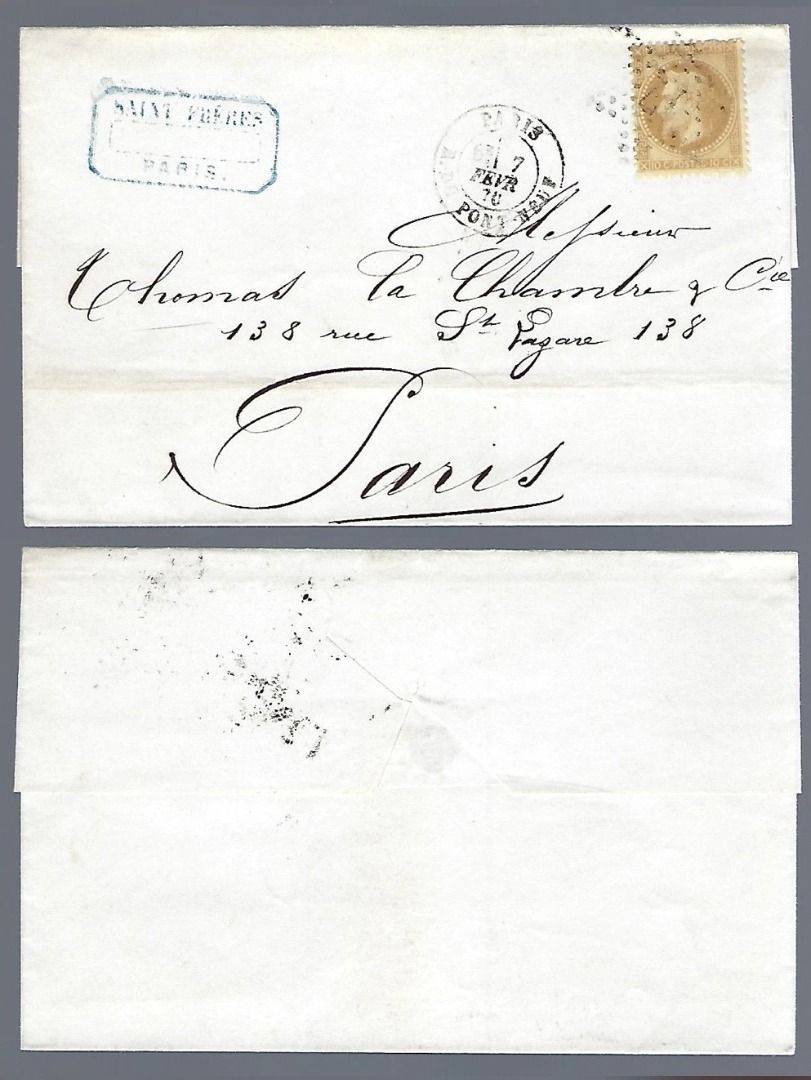 SAINT FRÈRES
PARIS.
PARIS
7
FEVR
70
R. DU PONT NEUF
10 C POSTES 10 C
Messieurs
Thomas La Chambre & Cie
138 rue St Lazare 138
Paris